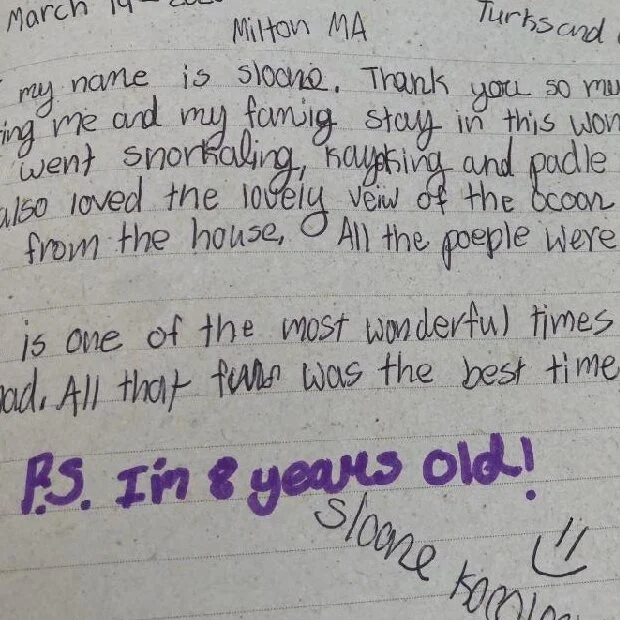 March 19
Milton MA
Turks and
my name is sloane. Thank you so mu
ing me and my famig stay in this won
went snorkaling, kayaking and padle
also loved the lovely veiw of the ocean
from the house. All the poeple were
is one of the most wonderful times
ad. All that fun was the best time
P.S. I'm 8 years old!
Sloane